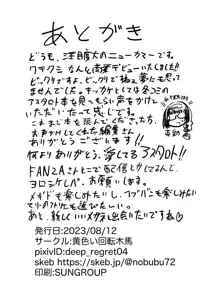 あとがき
どうも、注目度大のニューカマーです。
ワキチクなんと商業デビューいたしました!!
ビックリですよ、ビックリで
ませんでした。キッカケとしては冬コミの
アスタロト本を見てもらい声をかけて
いただいたって感じです。
こまでの本を読んでくださった方、
お声かけしてくれた編集さん
ありがとうございます!!
何よりありがとう、愛してるアスタロト!!
FANZAさんとこで配信とかしてるんで、
ヨロシクしペ、お願いします。
メギドも楽しみたいし、ブブバンも楽しみたい
あと、新しいメガネっ娘と出会いたいですね
発行日:2023/08/12
サークル:黄色い回転木馬
pixivID:deep_regret04
skeb https://skeb.jp/@nobubu72
印刷:SUNGROUP